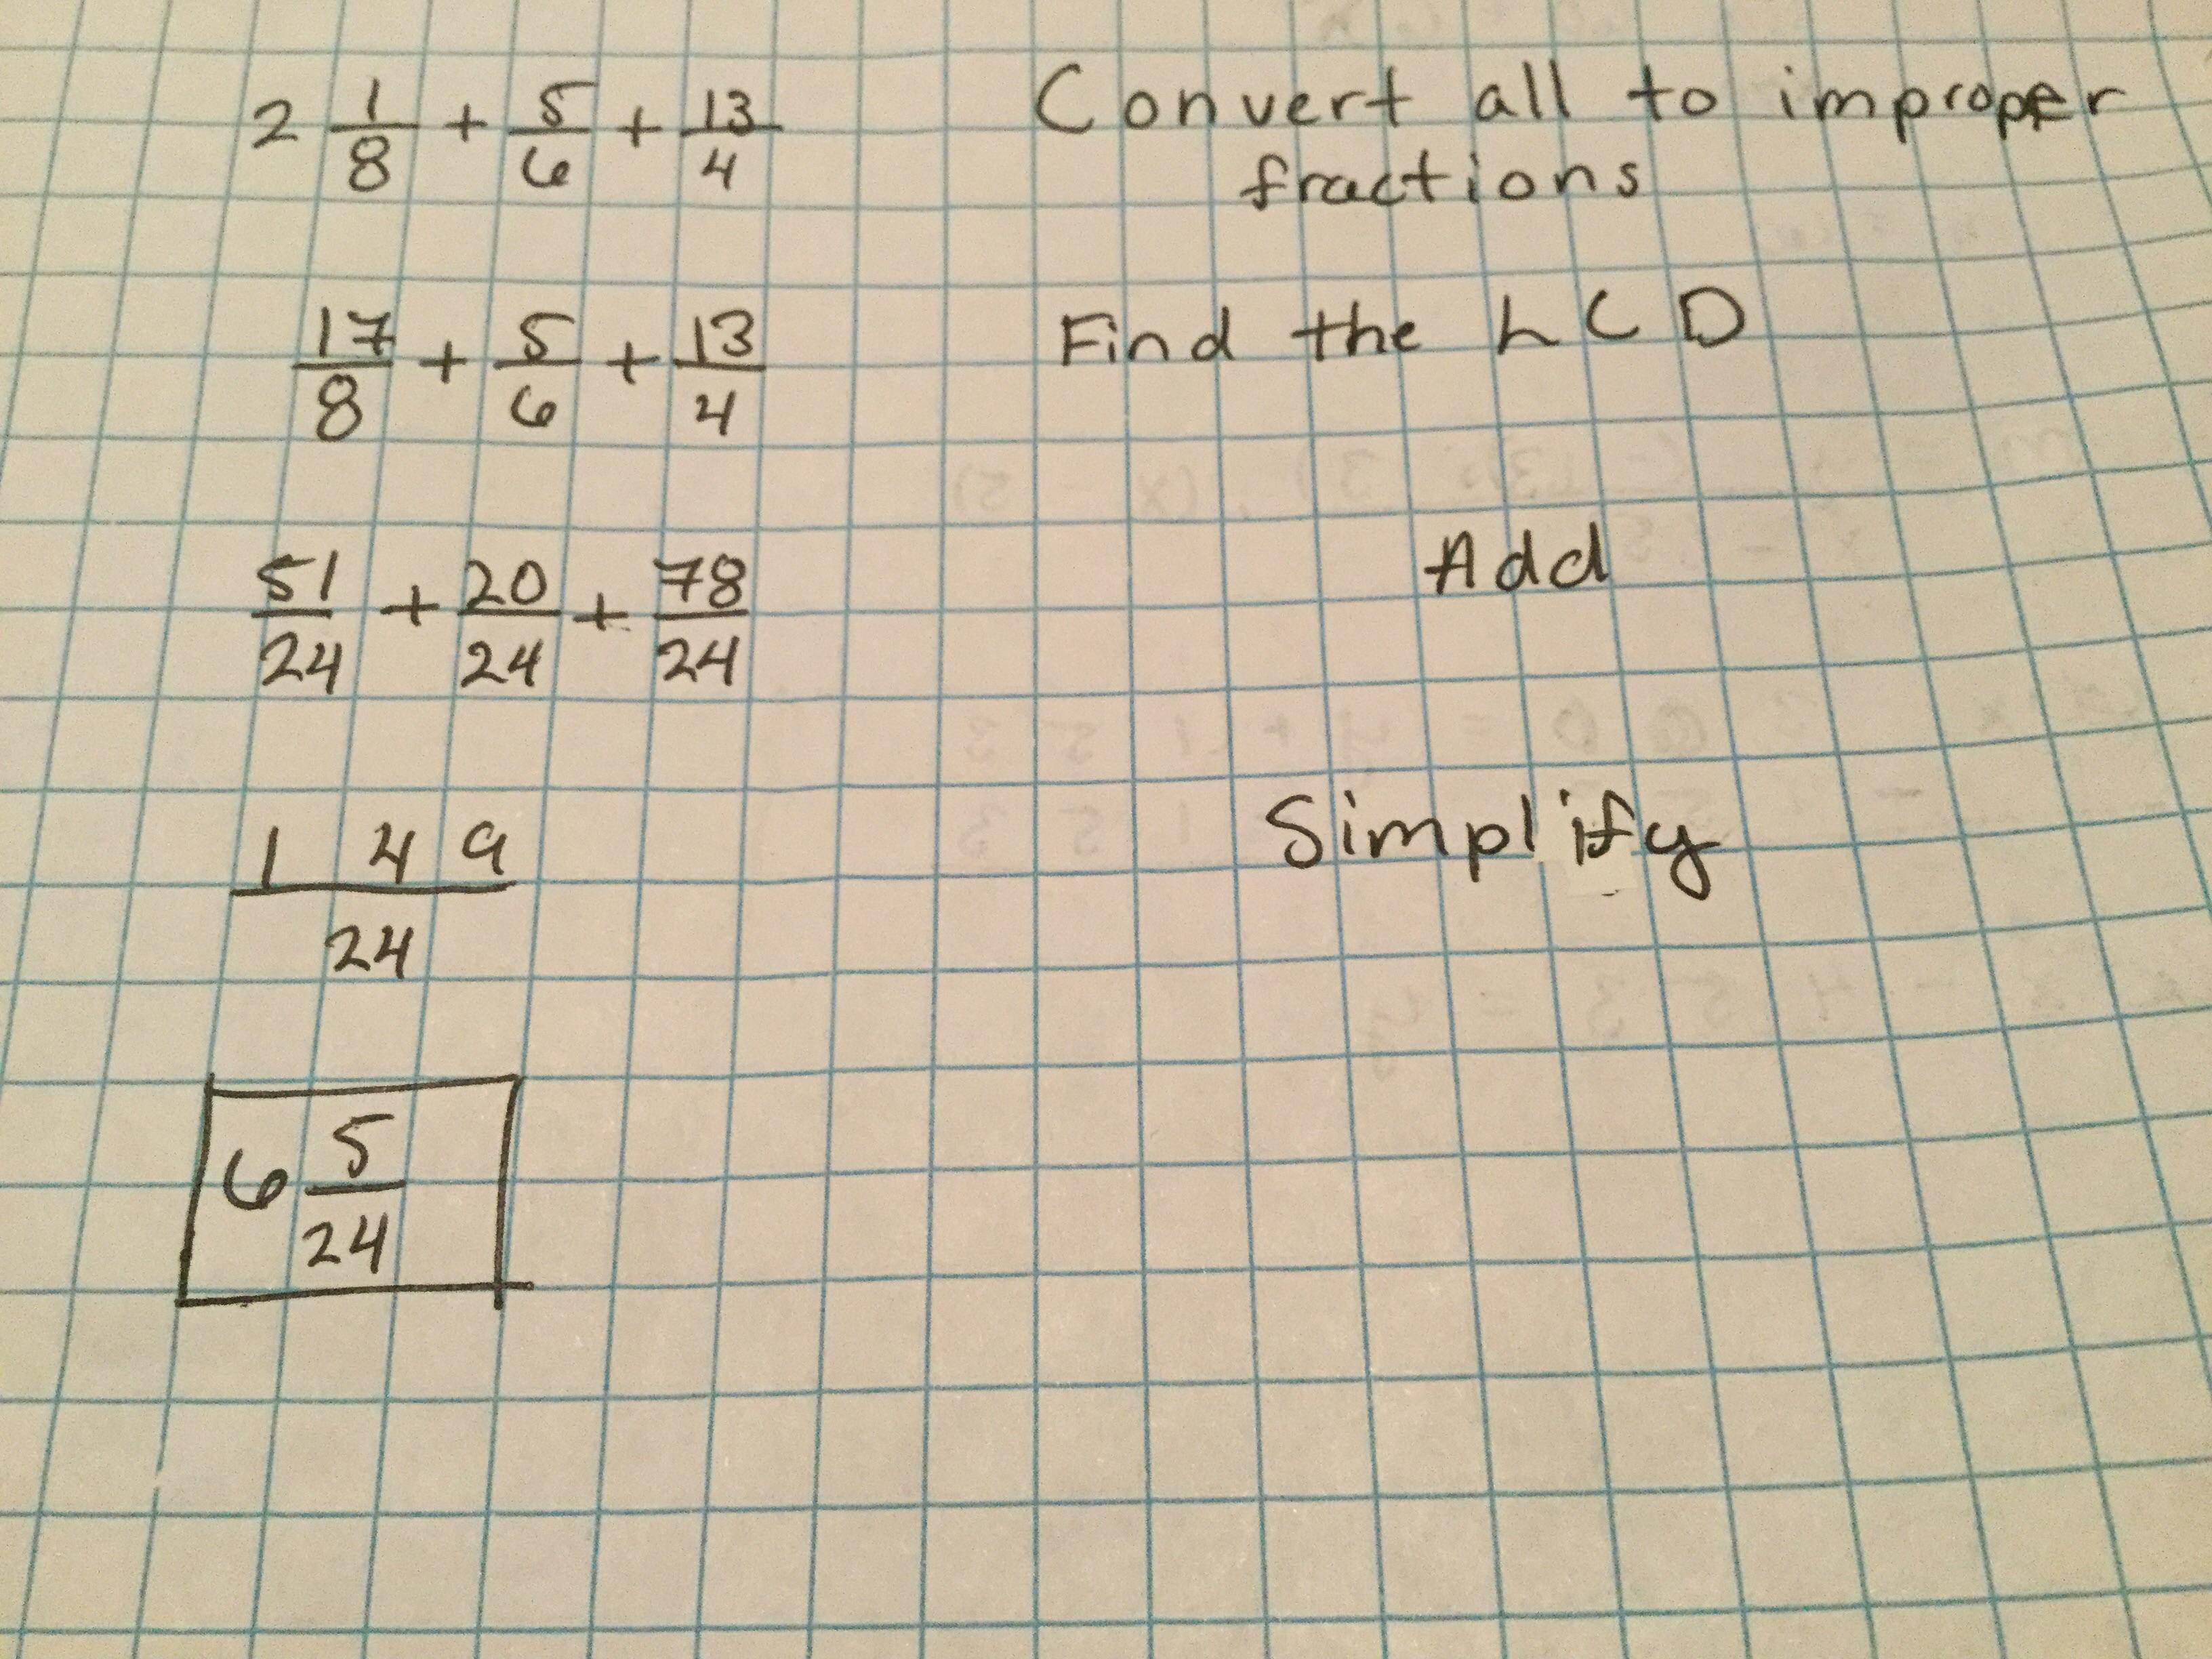 2 1/8 + 5/6 + 13/4 Convert all to improper
fractions
17/8 + 5/6 + 13/4 Find the LCD
51/24 + 20/24 + 78/24 Add
149/24 Simplify
6 5/24